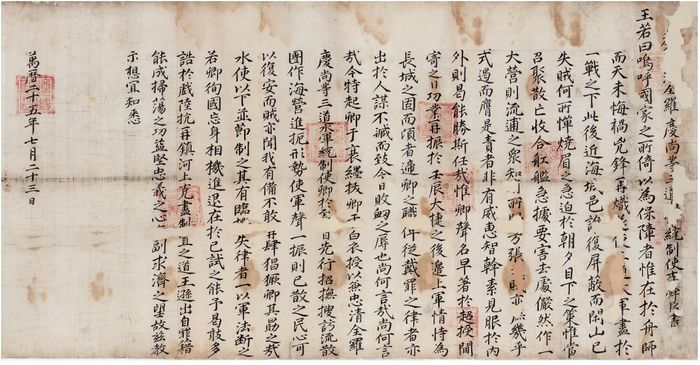 全羅慶尚等三道 統制使
王若曰嗚呼國家之所倚以爲保障者惟在於舟師
而天未悔禍兇鋒再熾 三道大軍盡於
一戰之下此後近海城邑誰復屏蔽而閑山已
失賊何所憚燒眉之急迫於朝夕目下之策惟當
召聚散亡收合舡艦急據要害去處儼然作一
大營則流逋之衆知 所 方張 亦 幾乎
式遏而膺是責者非有威惠智幹素見服於內
外則曷能勝斯任哉惟卿聲名早著於超授閫
寄之日功業再振於壬辰大捷之後邊上軍情恃爲
長城之固而頃者遞卿之職俾從戴罪之律者亦
出於人謀不臧而致今日敗衄之辱也尚何言哉尚何言
哉今特起卿于衰絰拔卿于白衣授以兼忠清全羅
慶尚等三道水軍統制使卿於至日先行招撫搜訪流散
團作海營進扼形勢使軍聲一振則已散之民心可
以復安而賊亦聞我有備不敢再肆猖獗卿其勗之哉
水使以下並節制之其有臨 失律者一以軍法斷之
若卿徇國忘身相機進退在於已試之能予曷敢多
誥於戲陸抗再鎮河上克盡制置之道王遜出自罪籍
能成掃蕩之功益堅忠義之心 副求濟之望故茲教
示想宜知悉
萬曆二十五年七月二十三日